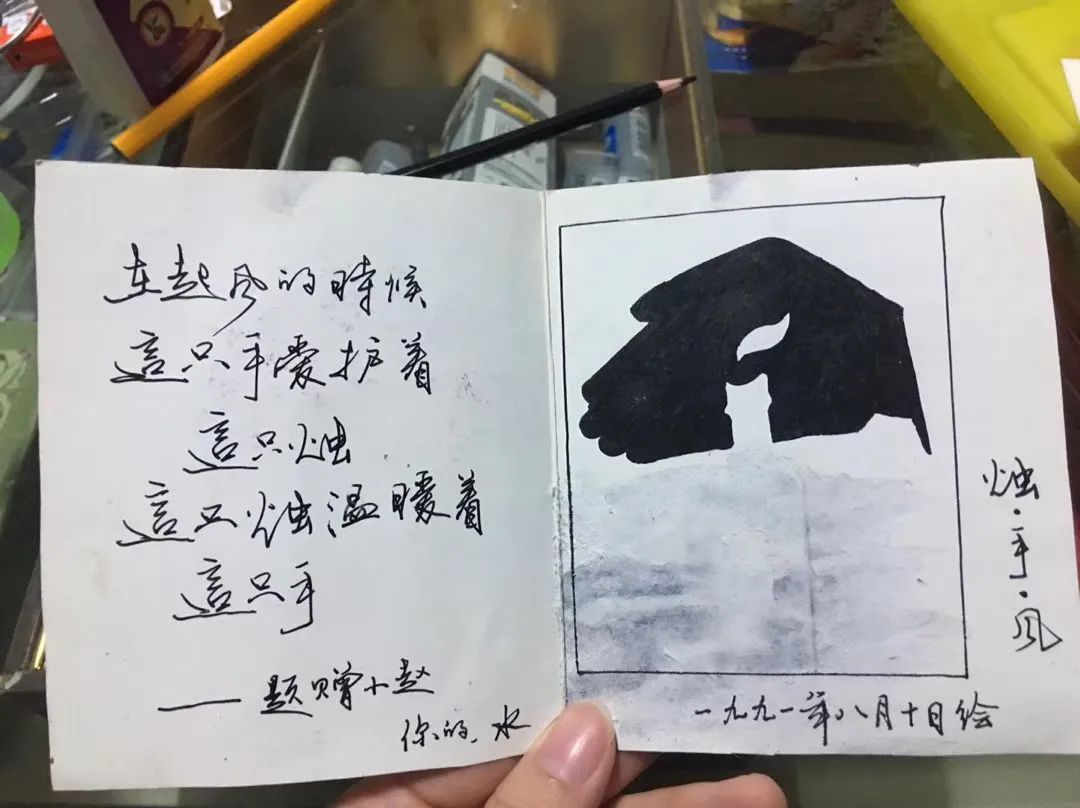 在起风的時候
這只手爱护着
這只烛
這只烛温暖着
這只手
——题赠小赵
你的、水
烛·手·风
一九九一年八月十日绘